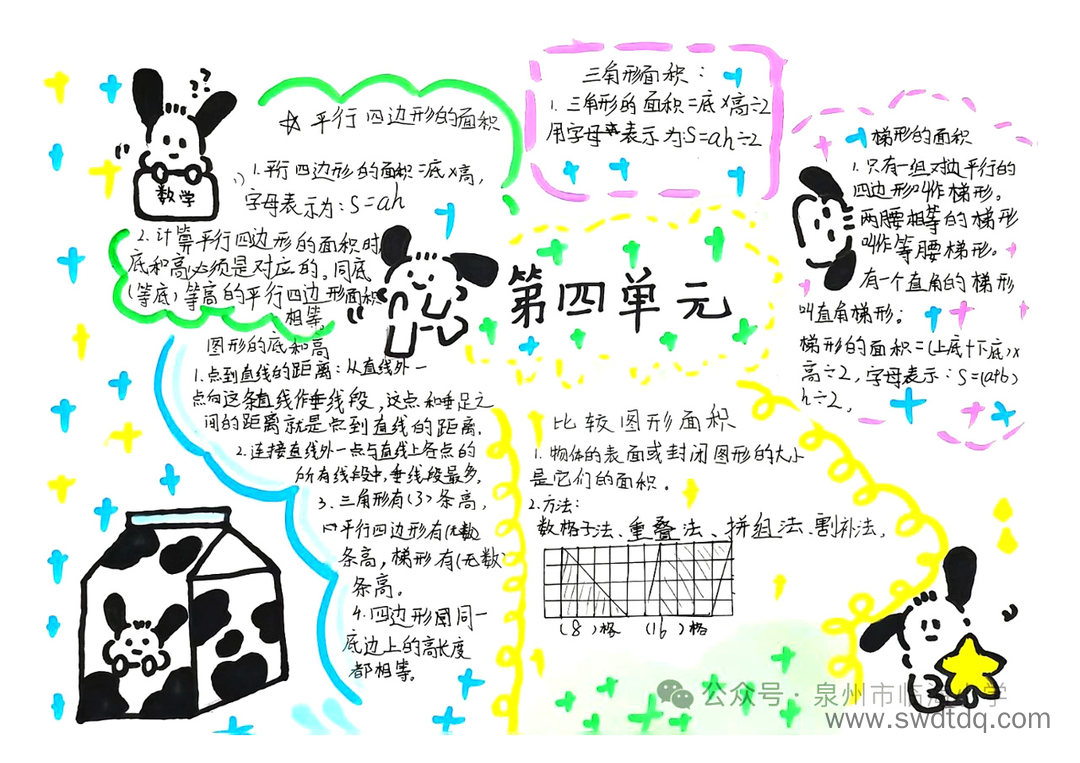 数学
☆ 平行四边形的面积
1.平行四边形的面积=底×高,
字母表示为:S=ah
2.计算平行四边形的面积时
底和高必须是对应的。同底
(等底)等高的平行四边形面积
相等。
三角形面积:
1.三角形的面积=底×高÷2
用字母表示为:S=ah÷2
梯形的面积
1.只有一组对边平行的
四边形叫作梯形。
两腰相等的梯形
叫作等腰梯形。
有一个直角的梯形
叫直角梯形。
梯形的面积=(上底+下底)×
高÷2,字母表示:S=(a+b)
h÷2,
第四单元
图形的底和高
1.点到直线的距离:从直线外一
点向这条直线作垂线段,这点和垂足之
间的距离就是点到直线的距离.
2.连接直线外一点与直线上各点的
所有线段中,垂线段最多.
3.三角形有(3)条高,
平行四边形有(无数)
条高,梯形有(无数)
条高。
4.四边形同一
底边上的高长度
都相等。
比较图形面积
1.物体的表面或封闭图形的大小
是它们的面积.
2.方法:
数格子法、重叠法、拼组法、割补法,
(8)格 (16)格
公众号·泉州市临江小学
www.swdtdq.com